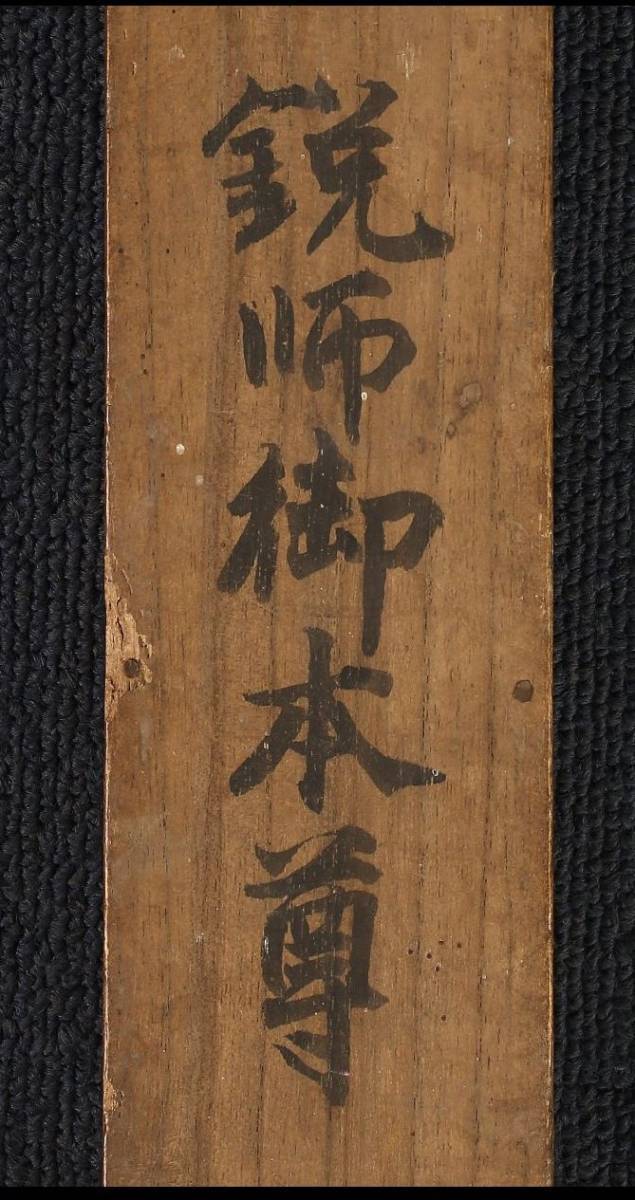 鋭師御本尊